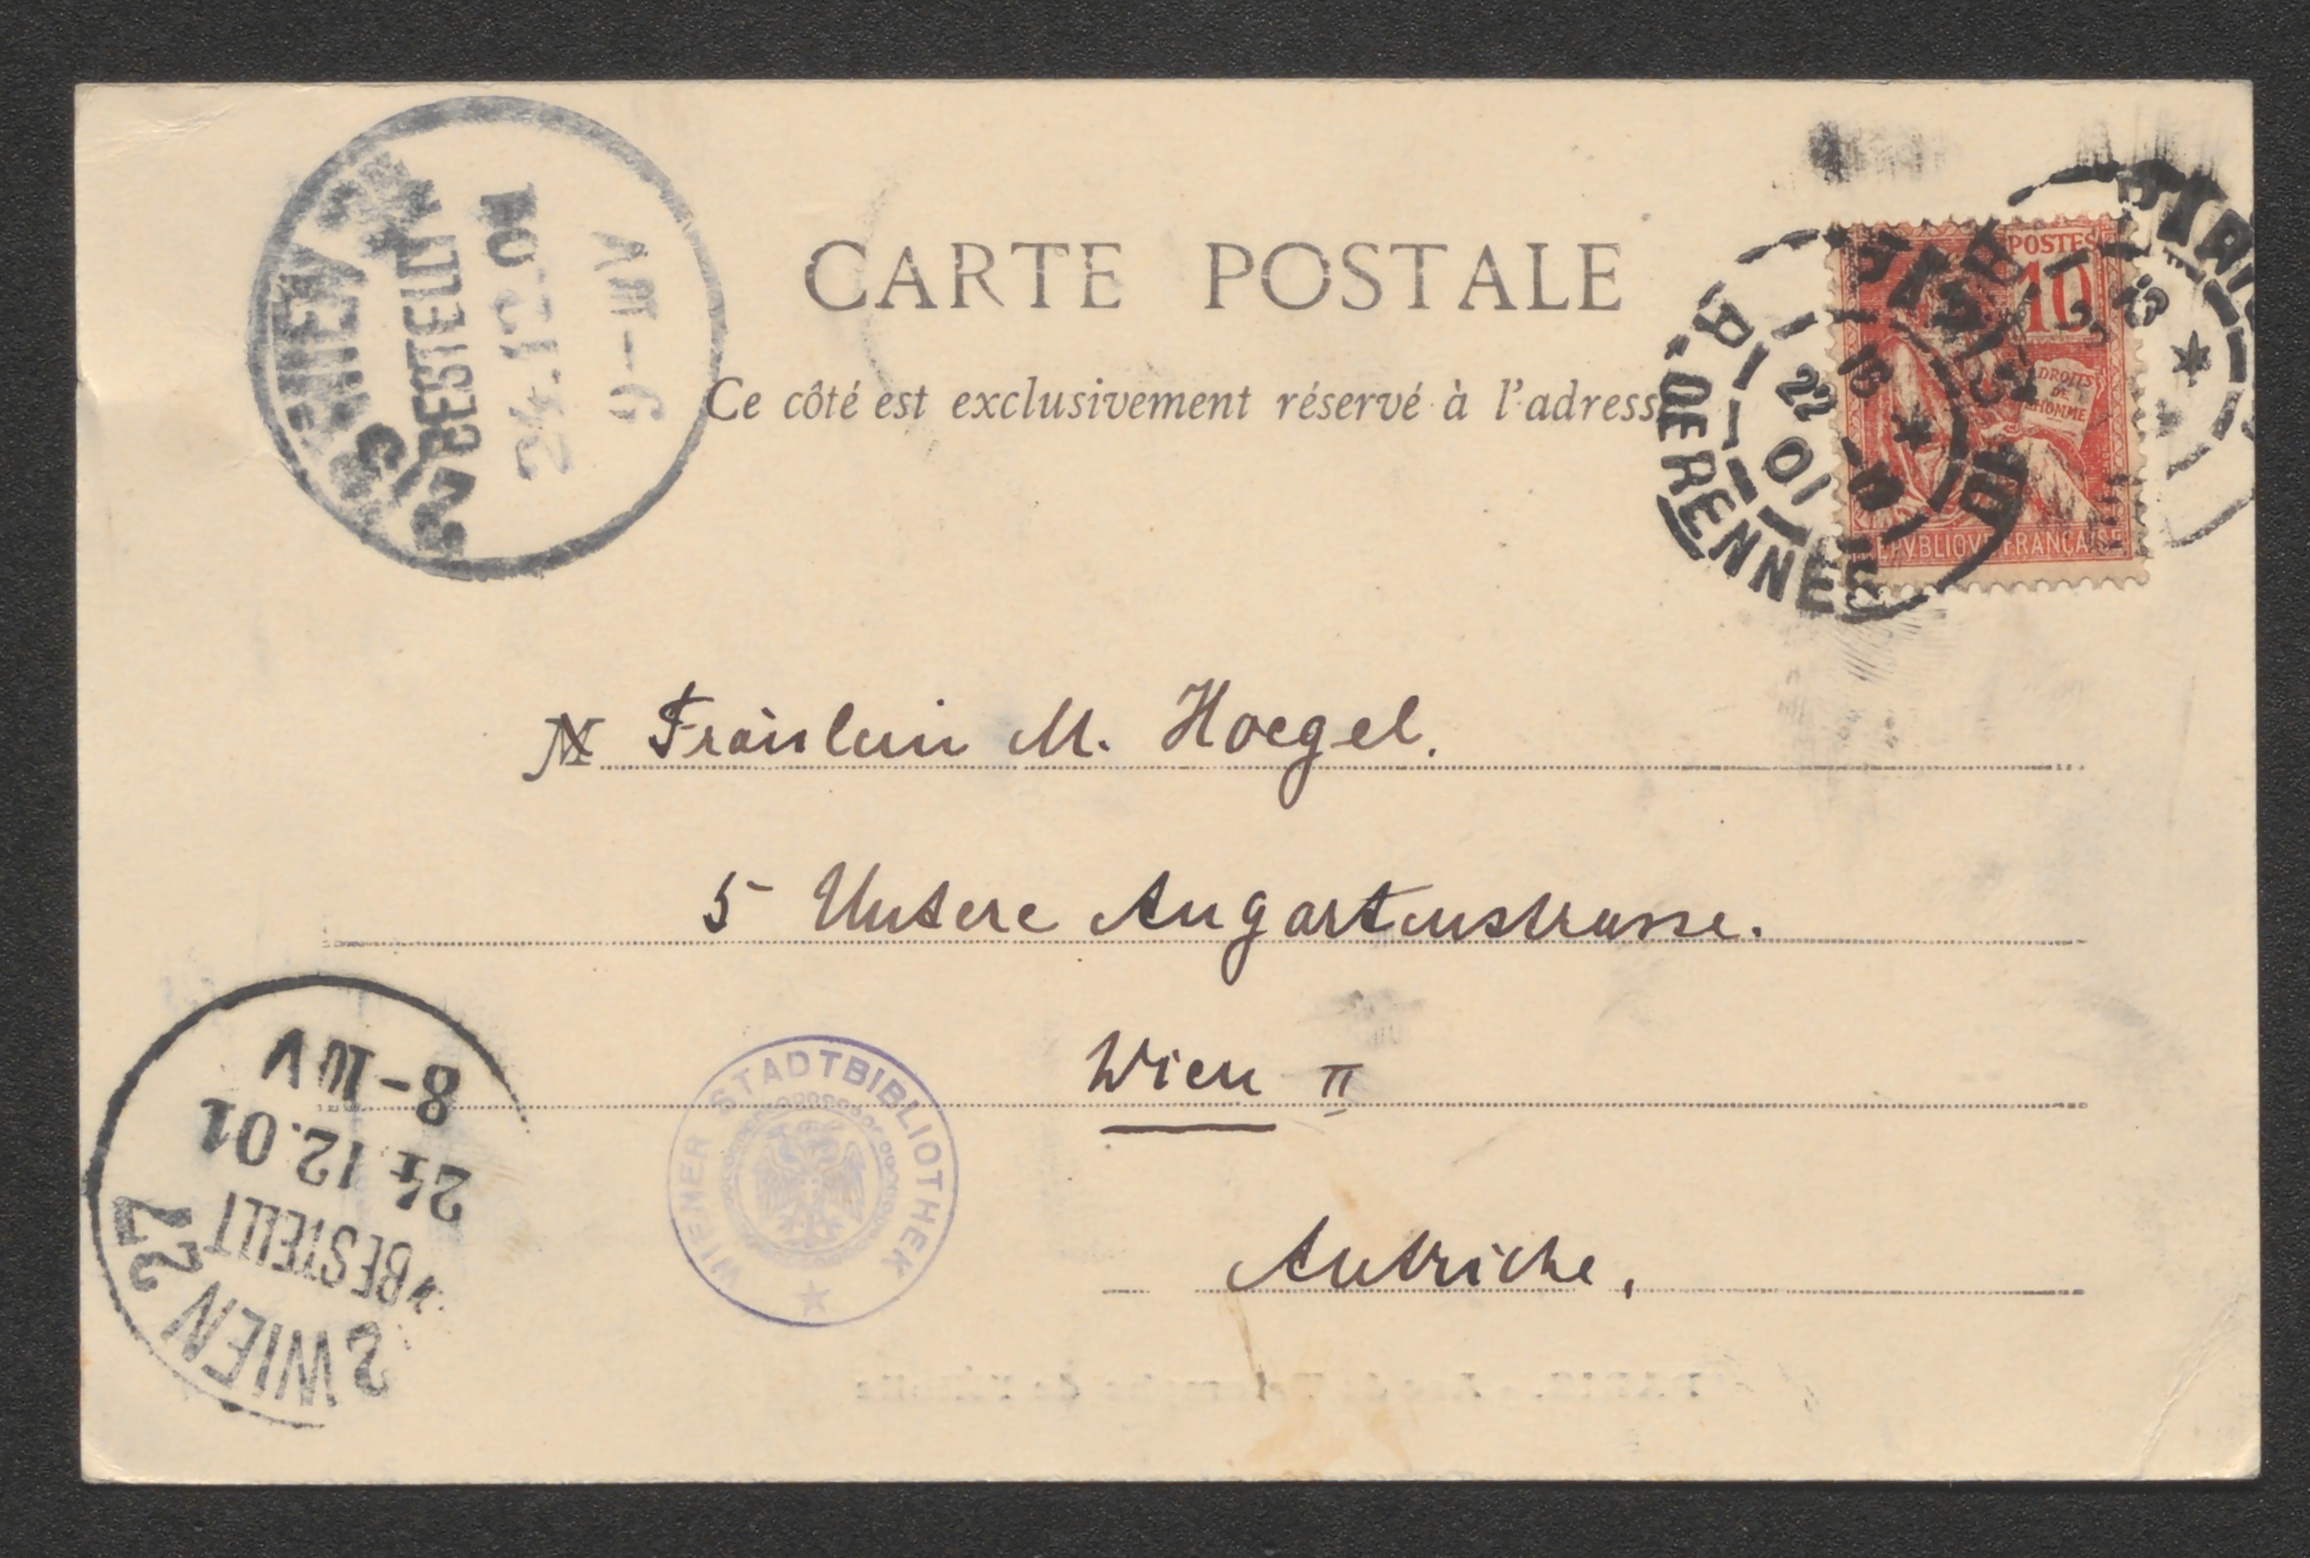 CARTE POSTALE
Ce côté est exclusivement réservé à l'adress
POSTES
10
DROITS
DE
L'HOMME
REPVBLIQVE FRANÇAISE
PARIS
R. DE RENNES
22
01
WIEN
BESTELLT
24.12.01
9-10V
M Fräulein M. Hoegel.
5 Untere Augartenstrasse.
Wien II
Autriche.
WIENER STADTBIBLIOTHEK
2 WIEN 2/2
BESTELLT
24.12.01
8-10V